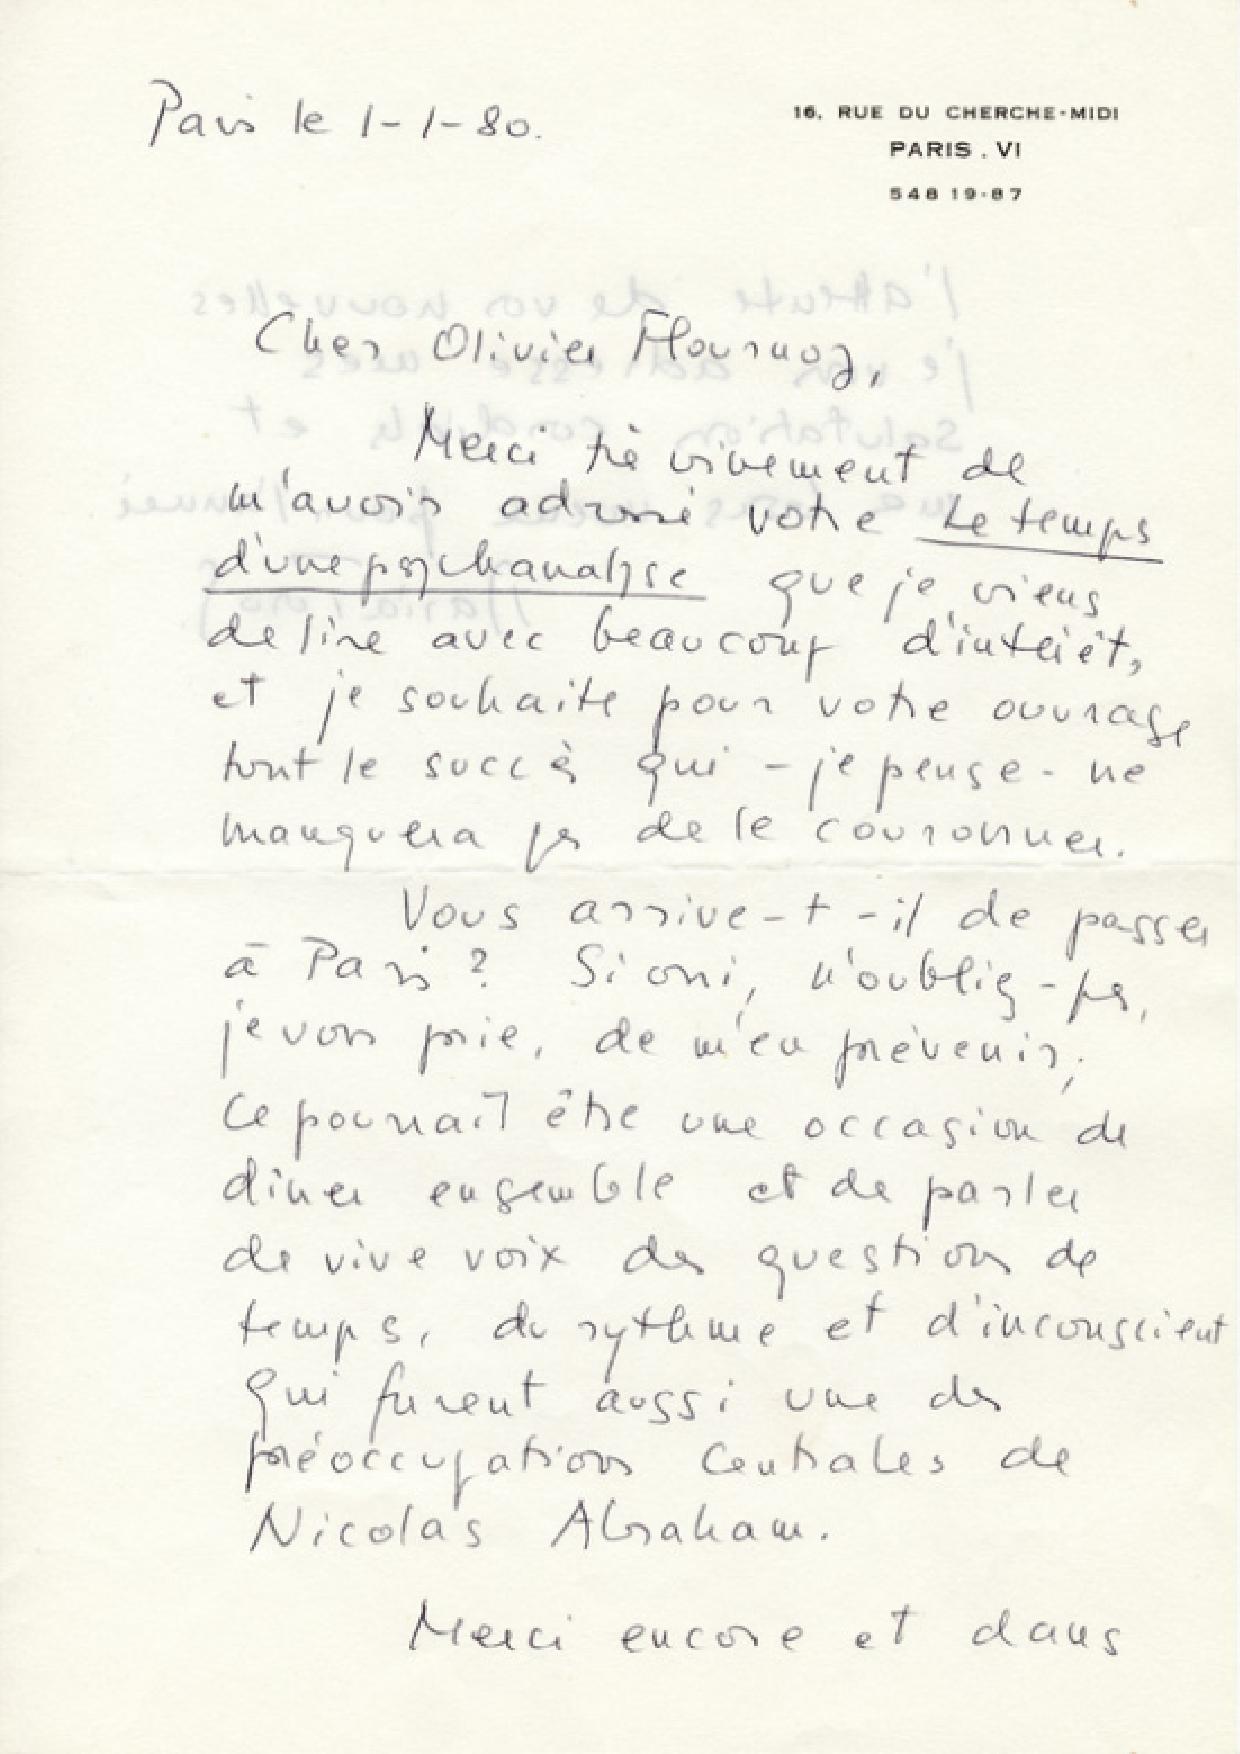 Paris le 1-1-80.
16, RUE DU CHERCHE-MIDI
PARIS . VI
548 19-87
Cher Olivier Flournoy,
Merci très vivement de
m'avoir adressé votre Le temps
d'une psychanalyse que je viens
de lire avec beaucoup d'intérêt,
et je souhaite pour votre ouvrage
tout le succès qui - je pense - ne
manquera pas de le couronner.
Vous arrive-t-il de passer
à Paris ? Si oui, n'oubliez-pas,
je vous prie, de m'en prévenir,
ce pourrait être une occasion de
dîner ensemble et de parler
de vive voix des questions de
temps, de rythme et d'inconscient
qui furent aussi une des
préoccupations centrales de
Nicolas Abraham.
Merci encore et dans
l'attente de vos nouvelles
je vous adresse mes
salutations cordiales et